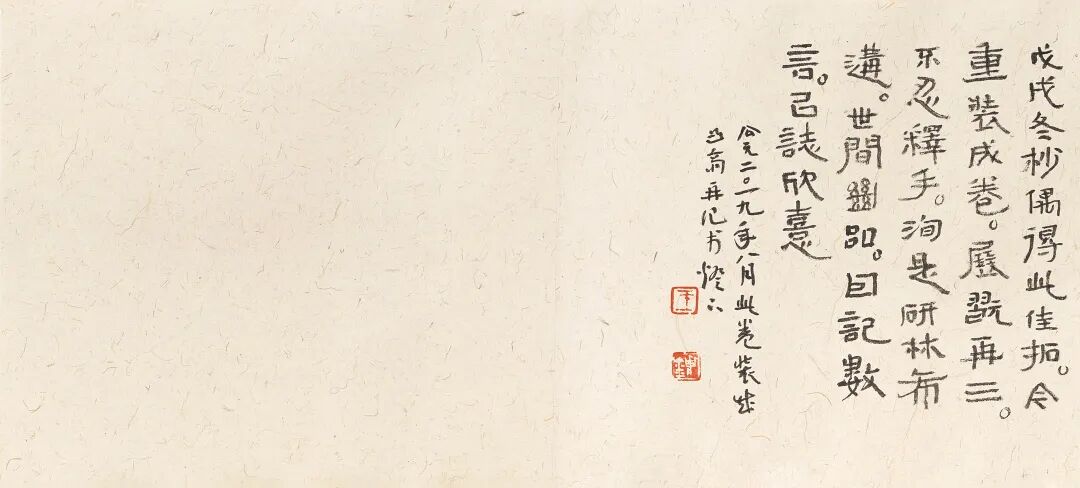 戊戌冬杪偶得此佳拓。今
重装成卷。展翫再三。
不忍释手。洵是研林希
遘。世间幽品。因记数
言。㠯誌欣憙
公元二〇一九年八月此卷装成
再记于灯下